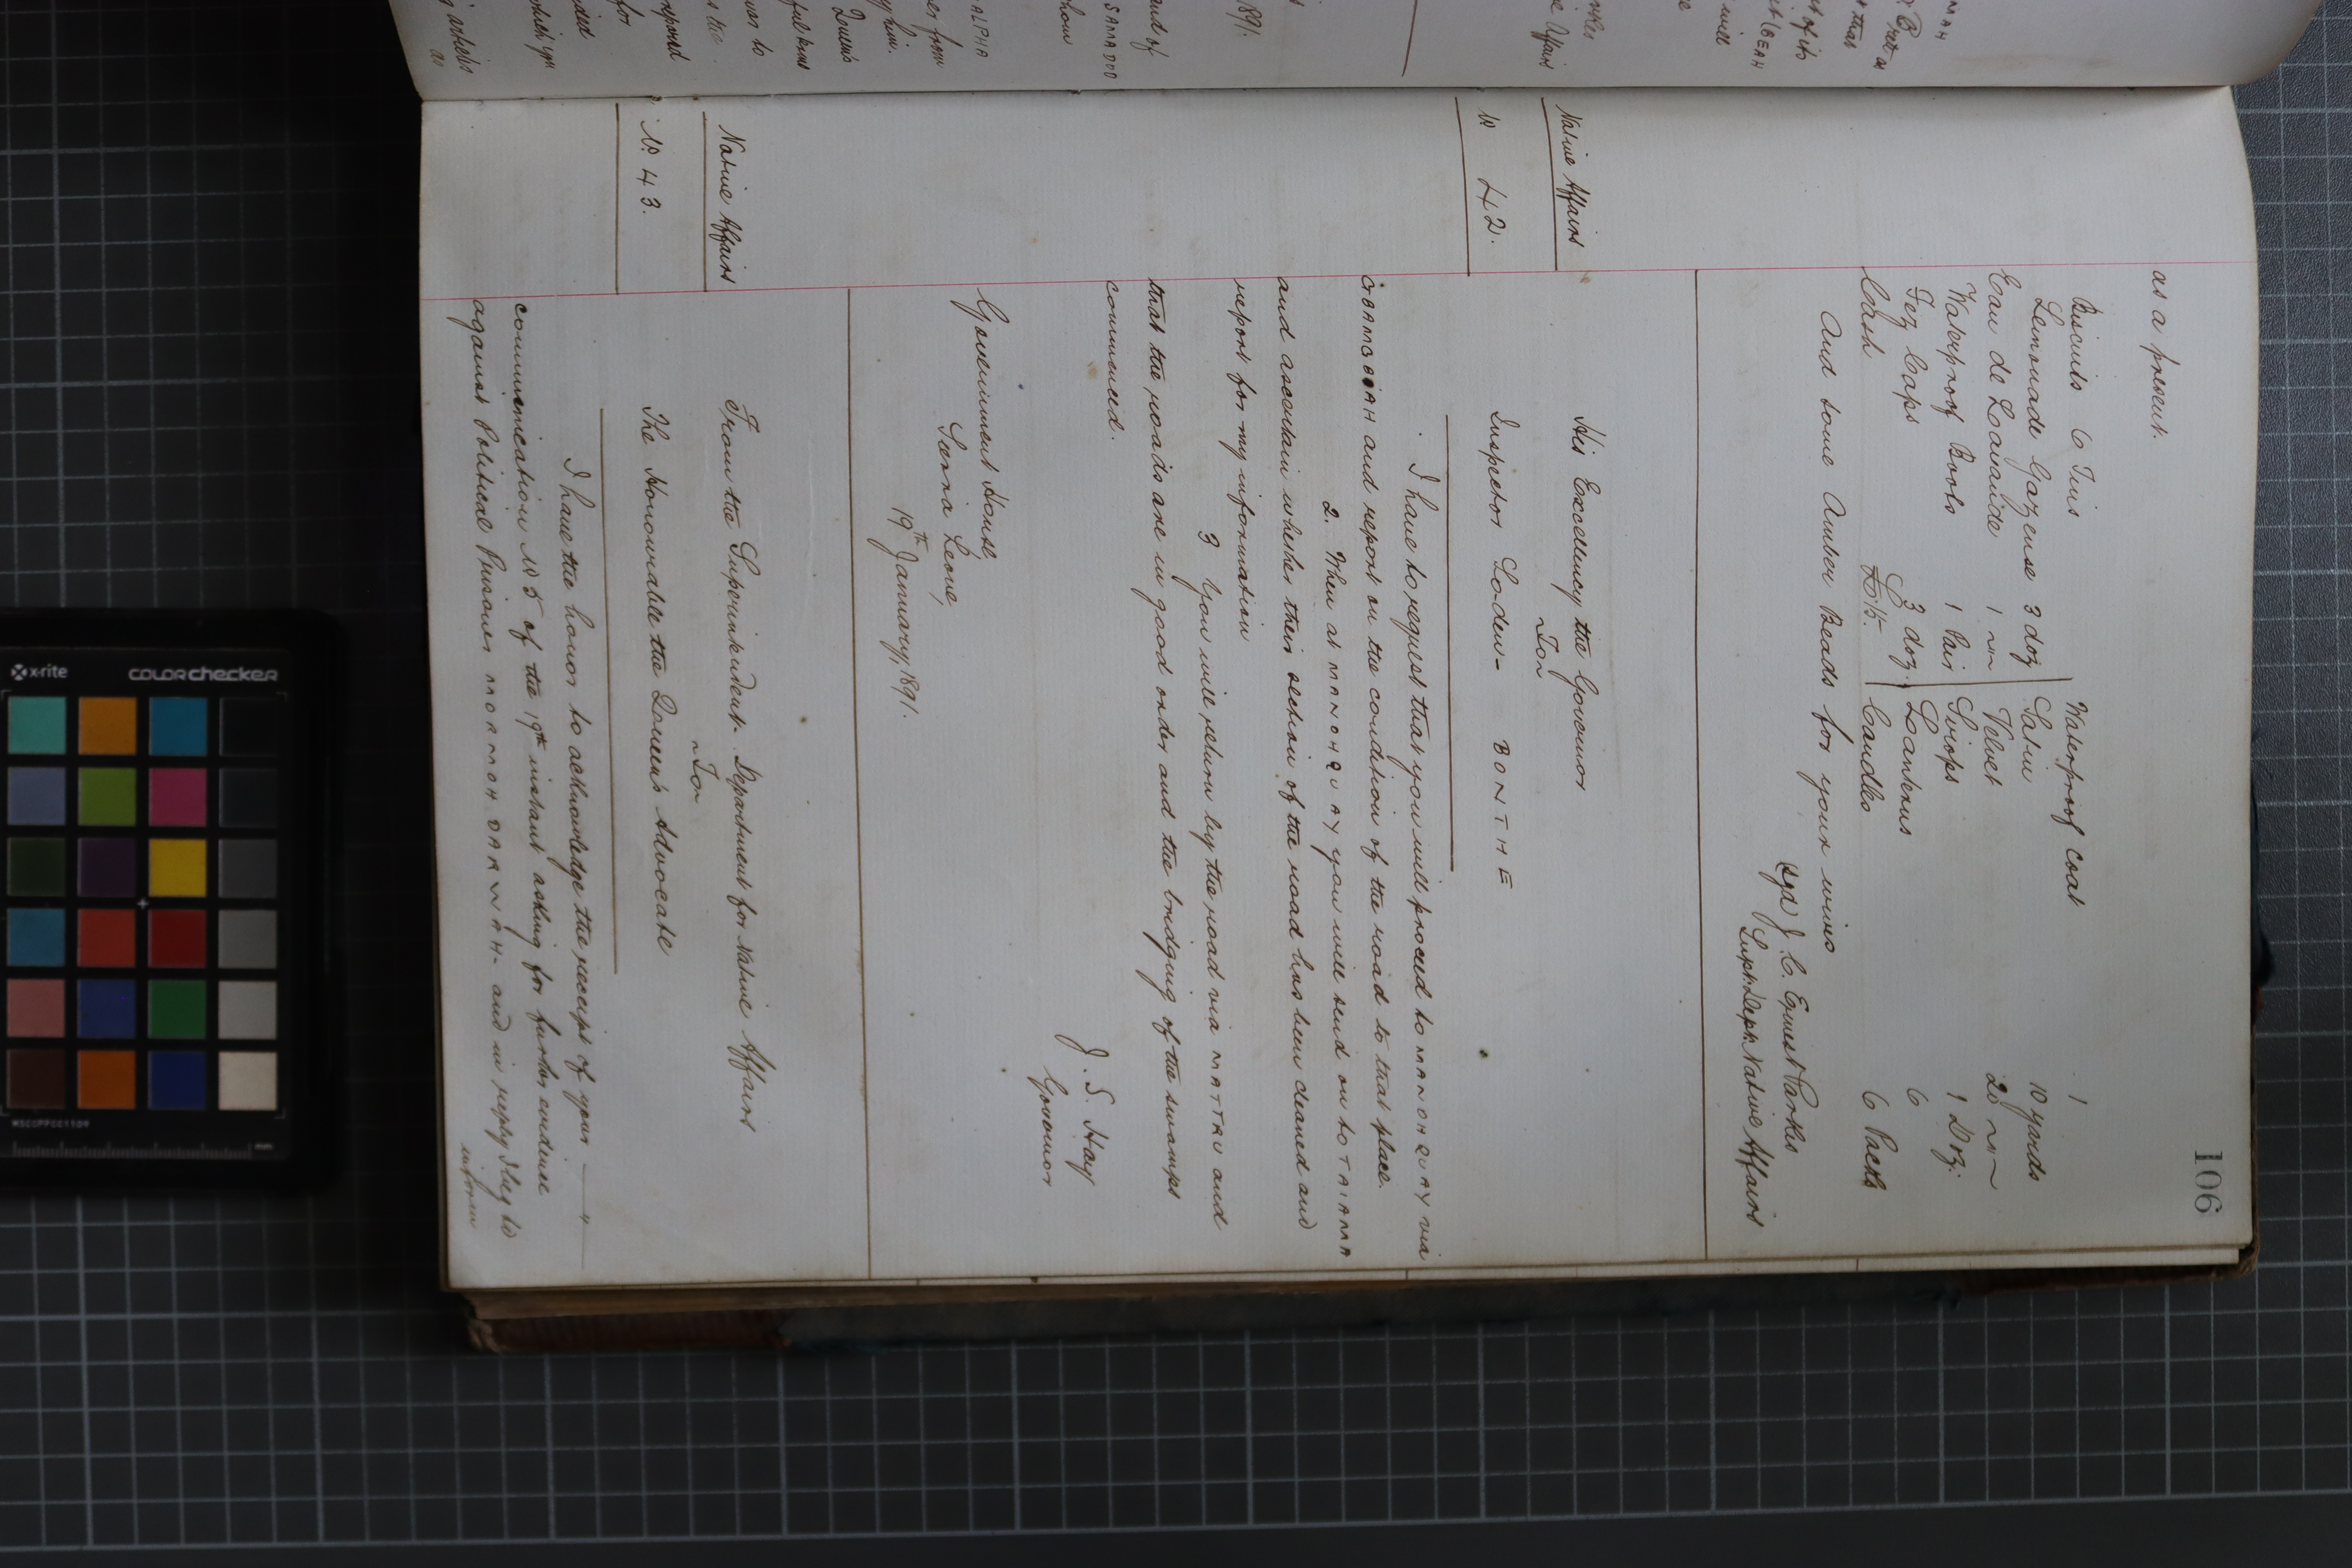 106
as a present.
Biscuits 6 Tins | Waterproof Coat 1
Lemonade Gazeuse 3 doz | Satin 10 yards
Eau de Lavande 1 " | Velvet 20 "
Waterproof Boots 1 Pair | Sirops 1 Doz.
Fez Caps 3 doz. | Lanterns 6
Cash £0.15.- | Candles 6 Packs
And some Amber Beads for your wives
(sgd) J. C. Ernest Parkes
Supt. Dept. Native Affairs
Native Affairs
No 42.
His Excellency the Governor
To
Inspector Loden - BONTHE
I have to request that you will proceed to MANOH QUAY via
GBAMBIAH and report on the condition of the road to that place.
2. When at MANOH QUAY you will send on to TAIAMA
and ascertain whether their section of the road has been cleaned and
report for my information
3 You will return by the road via MATTRU and
that the roads are in good order and the bridging of the swamps
commenced.
J. S. Hay
Governor
Government House
Sierra Leone,
19th January, 1891.
Native Affairs
No. 43.
From the Superintendent. Department for Native Affairs
To
The Honourable the Queen's Advocate
I have the honor to acknowledge the receipt of your
communication No 5 of the 19th instant asking for further evidence
against Political Prisoner MORMOH DARWAH- and in reply I beg to
inform
x-rite
colorchecker
MSCCPPCC1109
mm